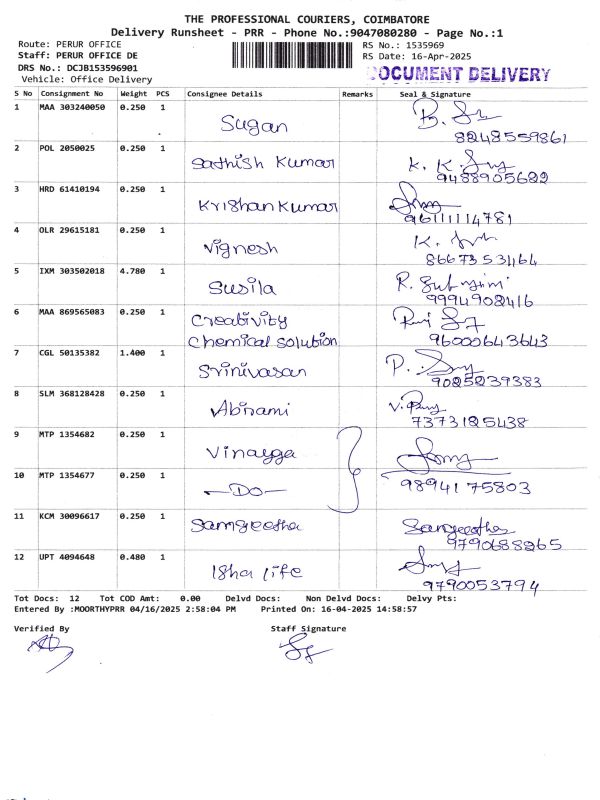 THE PROFESSIONAL COURIERS, COIMBATORE
Delivery Runsheet - PRR - Phone No.:9047080280 - Page No.:1
Route: PERUR OFFICE RS No.: 1535969
Staff: PERUR OFFICE DE RS Date: 16-Apr-2025
DRS No.: DCJB153596901 DOCUMENT DELIVERY
Vehicle: Office Delivery
S No Consignment No Weight PCS Consignee Details Remarks Seal & Signature
1 MAA 303240050 0.250 1 Sugan
8248559861
2 POL 2050025 0.250 1 Sathish Kumar K. K
9488905682
3 HRD 61410194 0.250 1 Krishan Kumar
96111114781
4 OLR 29615181 0.250 1 Vignesh K.
8667353464
5 IXM 303502018 4.780 1 Susila R.
9994908416
6 MAA 869565083 0.250 1 Creativity
Chemical Solution 96000643643
7 CGL 50135382 1.400 1 Srinivasan P.
9025239383
8 SLM 368128428 0.250 1 Abirami V.
7373125438
9 MTP 1354682 0.250 1 Vinayga
10 MTP 1354677 0.250 1 —DO— 9894175803
11 KCM 30096617 0.250 1 Sangeetha Sangeetha
9790688265
12 UPT 4094648 0.480 1 Isha life
9790053794
Tot Docs: 12 Tot COD Amt: 0.00 Delvd Docs: Non Delvd Docs: Delvy Pts:
Entered By :MOORTHYPRR 04/16/2025 2:58:04 PM Printed On: 16-04-2025 14:58:57
Verified By Staff Signature